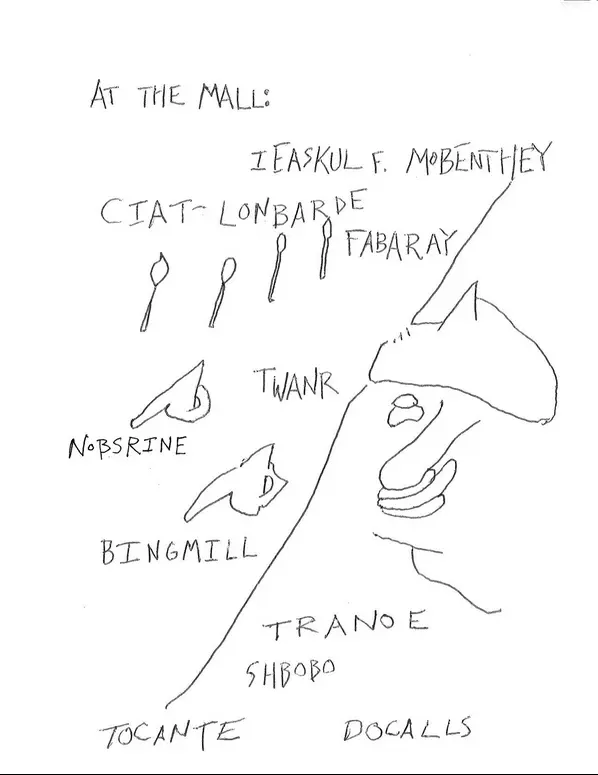 AT THE MALL:
IEASKUL F. MOBENTHEY
CIAT-LONBARDE
FABARAY
TWANR
NOBSRINE
BINGMILL
TRANOE
SHBOBO
TOCANTE
DOCALLS